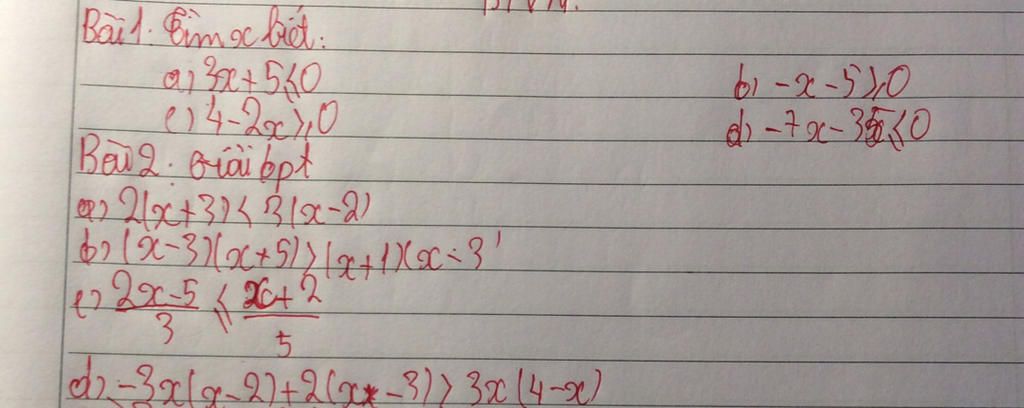 Bài 1. Tìm x biết:
a) 3x + 5 ≤ 0 b) -x - 5 ≥ 0
c) 4 - 2x ≥ 0 d) -7x - 35 ≤ 0
Bài 2: Giải bpt
a) 2(x+3) < 3(x-2)
b) (x-3)(x+5) > (x+1)(x-3
c) \frac{2x-5}{3} ≤ \frac{x+2}{5}
d) -3x(x-2)+2(x-3) > 3x(4-x)